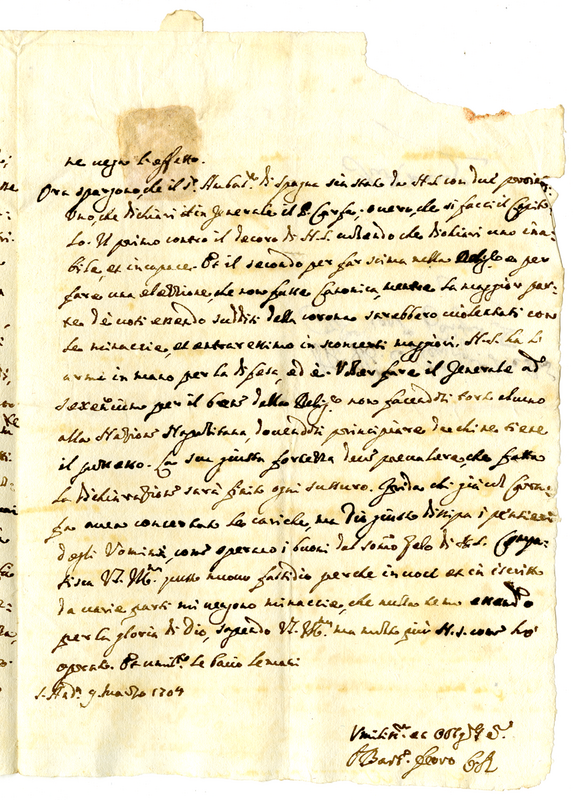 ne segua l'effetto.
Ora spargono, che il S.r Ambas.re di Spagna sia stato da N.S. con due
Uno, che dichiari in Generale il P. Carafa; overo, che si facci il Capito-
lo. Il primo contro il decoro di N.S. essendo che dichiari uno ina-
bile, et incapace. Et il secondo per far scisma nella Relig.e e per
fare una elettione, che non fusse Canonica, mentre la maggior par-
te de voti essendo sudditi della corona sarebbero violentati con
le minaccie, et entraressimo in sconcerti maggiori. N.S. ha l'
armi in mano per la difesa, ed è. Voler fare il Generale ad
sexennium per il bene della Relig.e non facendosi torto alcuno
alla Natione Napolitana, dovendosi principiare da chi ne tiene
il possesso. La sua giusta fortezza deve prevalere, che fatta
la dichiaratione sarà finito ogni sussurro. Grida chi già col Cara-
fa aveva concertato le cariche, ma Dio giusto dissipa i pensieri
degli Uomini, come sperano i buoni dal sommo Zelo di N.S. Compa-
tisca V.S. Ill.ma questo nuovo fastidio perche in voce et in iscritto
da varie parti mi vengono minaccie, che nulla temo essendo
per la gloria di Dio, sapendo V.S. Ill.ma ma molto più N.S. come hò
operato. Et umilm.te le bacio le mani
S. And.a 9 1704
Umiliss.o et Obligat.o S.
P. Bart.o